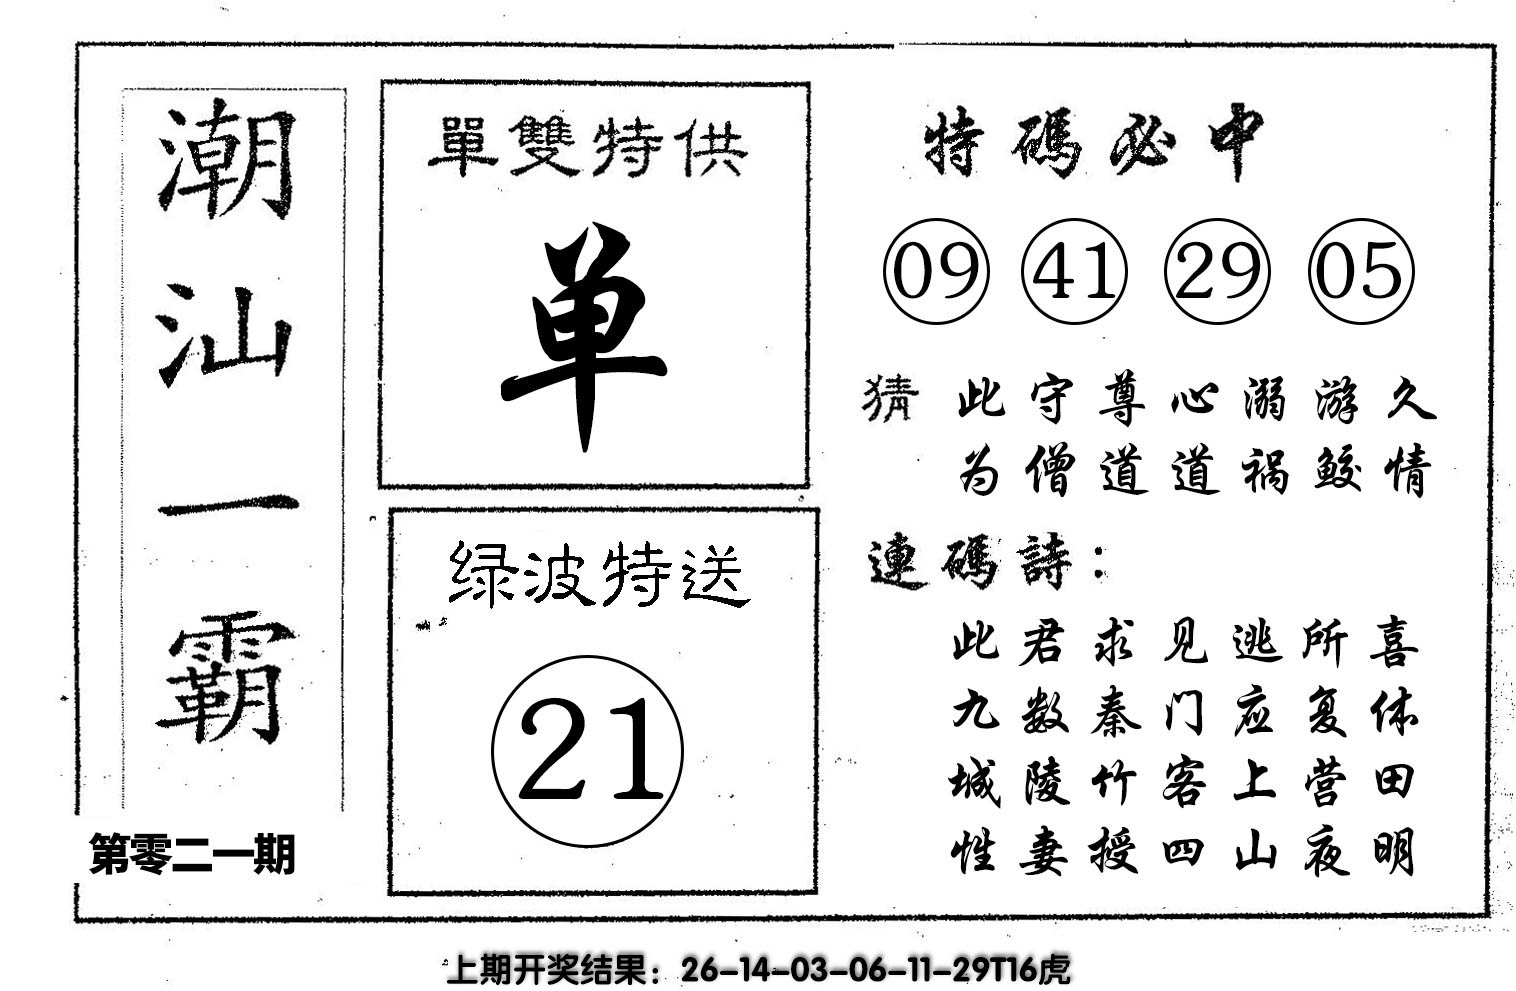 潮汕一霸
第零二一期
單雙特供
单
绿波特送
21
特碼必中
09 41 29 05
猜 此守尊心溺游久
为僧道道祸鲛情
連碼詩：
此君求见逃所喜
九数秦门应复体
城陵竹客上营田
性妻授四山夜明
上期开奖结果：26-14-03-06-11-29T16虎